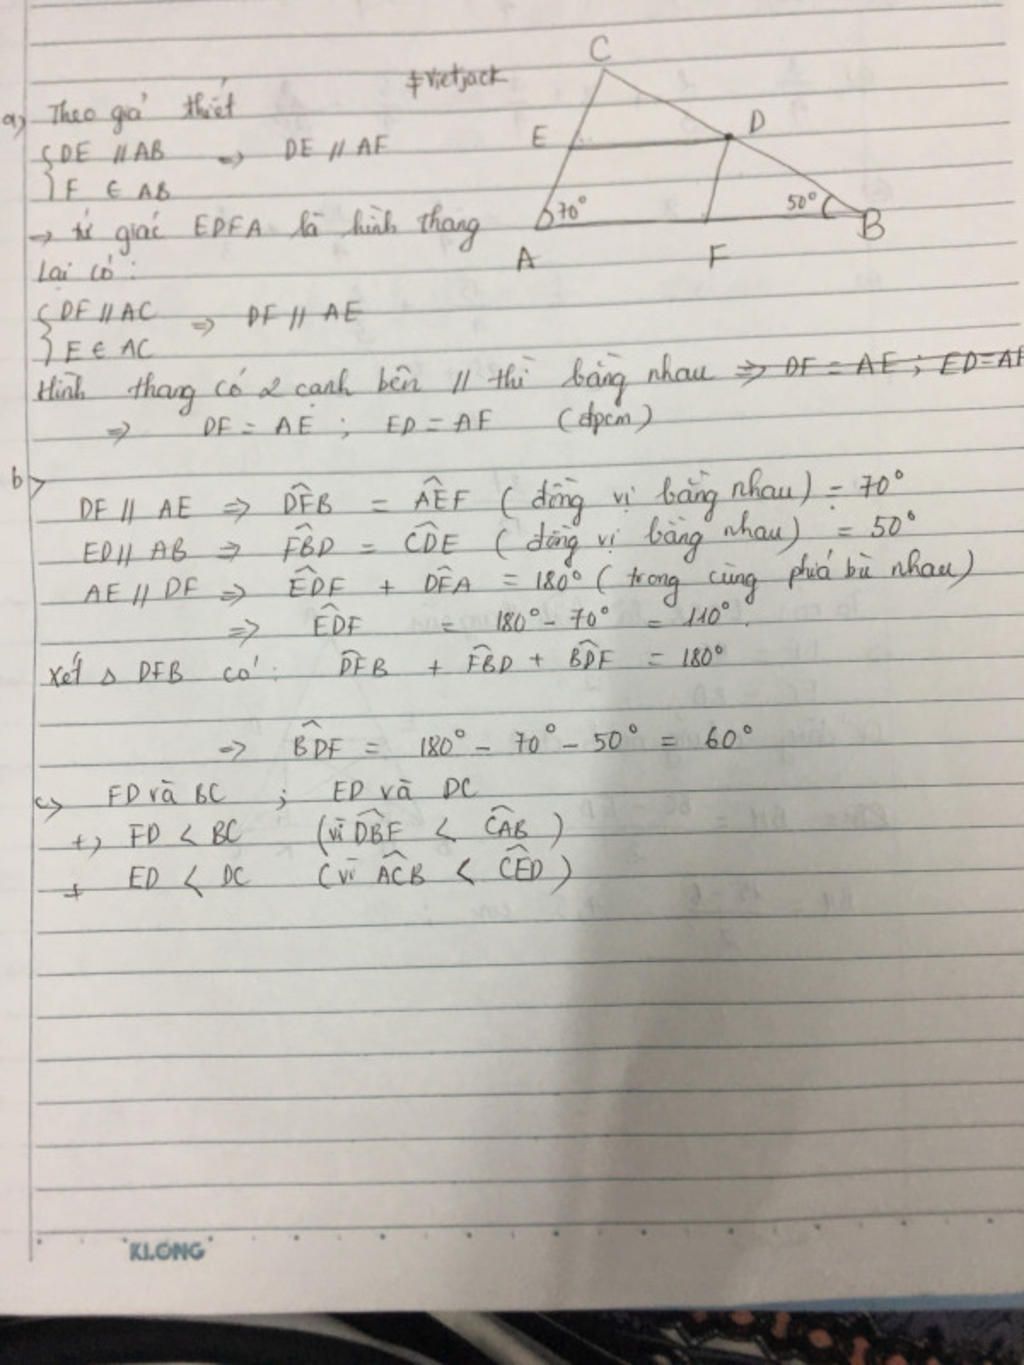 #Vietjack
C
E
D
70°
50°
A
F
B
a) Theo giả thiết
{DE // AB ⇒ DE // AF
F ∈ AB
→ tứ giác EDFA là hình thang
Lại có:
{DF // AC ⇒ DF // AE
E ∈ AC
Hình thang có 2 cạnh bên // thì bằng nhau ⇒ DF = AE ; ED = AF
⇒ DF = AE ; ED = AF (đpcm)
b>
DF // AE ⇒ DFB = AEF (đồng vị bằng nhau) = 70°
ED // AB ⇒ FBD = CDE (đồng vị bằng nhau) = 50°
AE // DF ⇒ EDF + DFA = 180° (trong cùng phía bù nhau)
⇒ EDF = 180° - 70° = 110°.
Xét Δ DFB có: DFB + FBD + BDF = 180°
⇒ BDF = 180° - 70° - 50° = 60°
c> FD và BC ; ED và DC
+) FD < BC (vì DBF < CAB)
+ ED < DC (vì ACB < CED)
KLONG